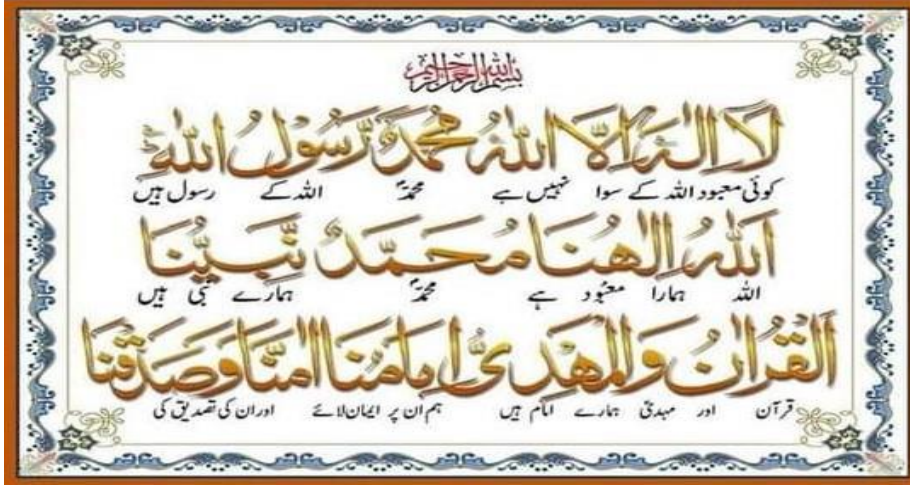 بسم الله الرحمن الرحيم
لَا اِلٰهَ اِلَّا اللهُ مُحَمَّدٌ رَّسُوْلُ اللهِ
کوئی معبود اللہ کے سوا نہیں ہے محمدؐ اللہ کے رسول ہیں
اَللهُ اِلٰهُنَا مُحَمَّدٌ نَّبِيُّنَا
اللہ ہمارا معبُود ہے محمدؐ ہمارے نبی ہیں
اَلْقُرْاٰنُ وَالْمَهْدِیُّ اِمَامُنَا اٰمَنَّا وَصَدَّقْنَا
قرآن اور مہدیؑ ہمارے امام ہیں ہم ان پر ایمان لائے اور ان کی تصدیق کی